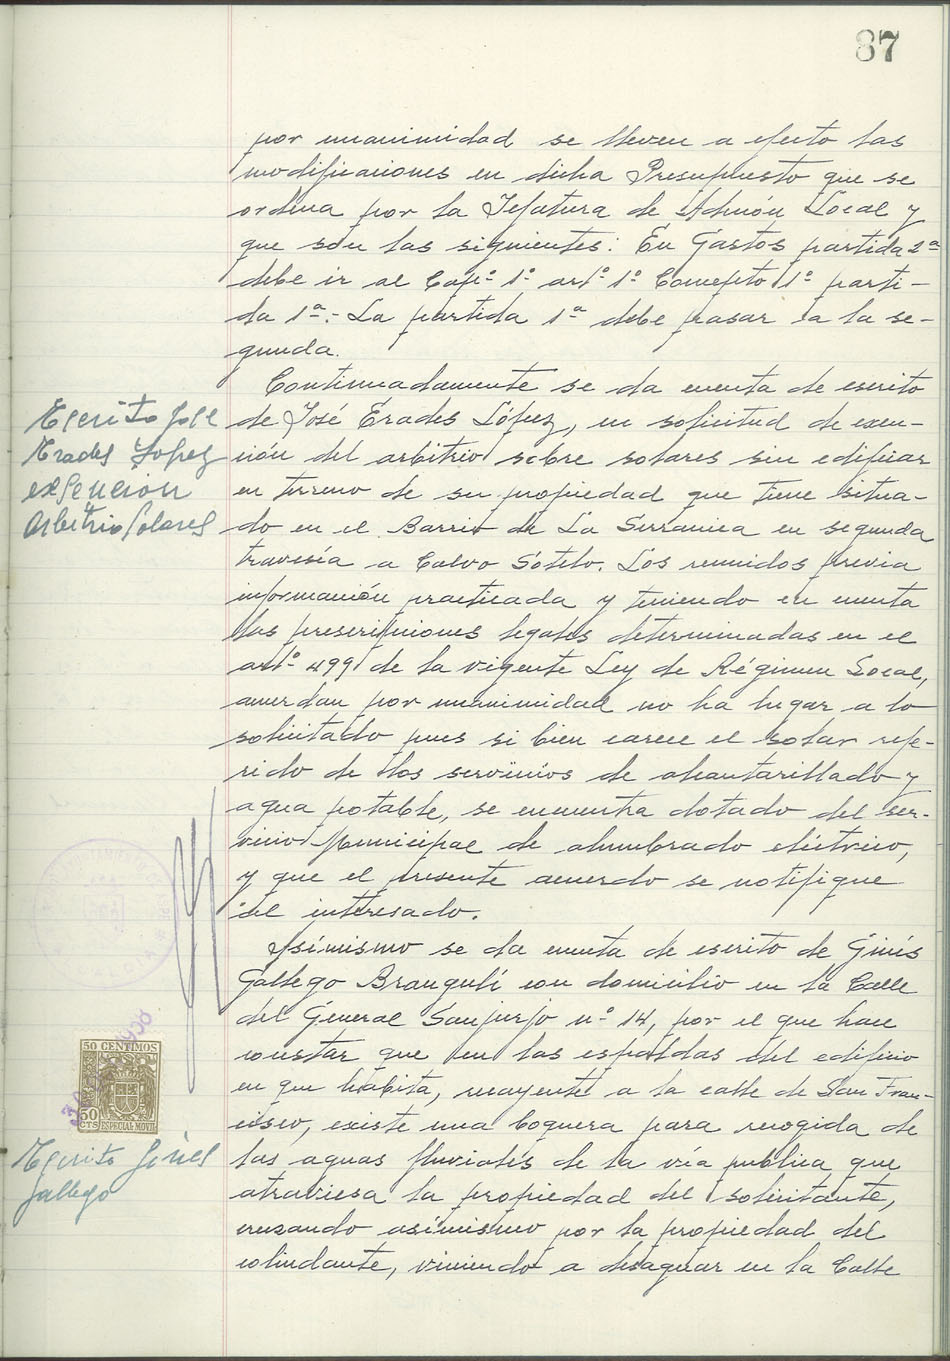 87
por unanimidad se lleven a efecto las
modificaciones en dicha Presupuesto que se
ordena por la Jefatura de Admón Local y
que son las siguientes: En Gastos partida 2ª
debe ir al Capº 1º artº 1º Concepto 1º parti-
da 1ª.- La partida 1ª debe pasar a la se-
gunda.
Continuadamente se da cuenta de escrito
de José Erades López, en solicitud de exen-
ción del arbitrio sobre solares sin edificar
en terreno de su propiedad que tiene situa-
do en el Barrio de La Serranica en segunda
travesía a Calvo Sótelo. Los reunidos previa
información practicada y teniendo en cuenta
las prescripciones legales determinadas en el
artº 499 de la vigente Ley de Régimen Local,
acuerdan por unanimidad no ha lugar a lo
solicitado pues si bien carece el solar refe-
rido de los servicios de alcantarillado y
agua potable, se encuentra dotado del ser-
vicio Municipal de alumbrado eléctrico,
y que el presente acuerdo se notifique
al interesado.
Asímismo se da cuenta de escrito de Ginés
Gallego Brangulí con domicilio en la Calle
del General Sanjurjo nº 14, por el que hace
constar que en las espaldas del edificio
en que habita, recayente a la calle de San Fran-
cisco, existe una boquera para recogida de
las aguas fluviales de la vía publica que
atraviesa la propiedad del solicitante,
cruzando asímismo por la propiedad del
colindante, viniendo a desaguar en la Calle
Escrito José
Erades Lopez
exsención
Arbitrio Solares
50 CENTIMOS
50
CTS ESPECIAL MOVIL
Escrito Ginés
Gallego